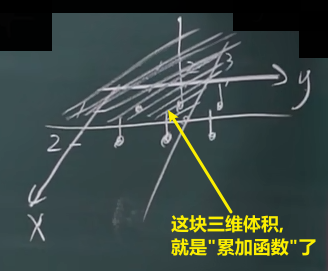 2 3
y
2
X
这块三维体积,
就是"累加函数"了